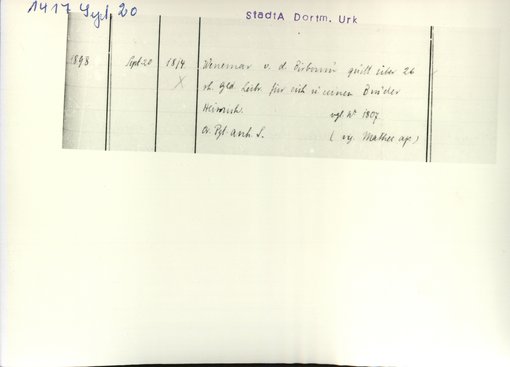 1417 Sept. 20
StadtA Dortm. Urk
1898 Sept 20 1814 Wenemar v. d. quitt über 26
rh. Gld. Leibr. für sich u seinen Bruder
X
Heinrich. vgl. Nr 1807.
Or. Pgt. anh. S. (